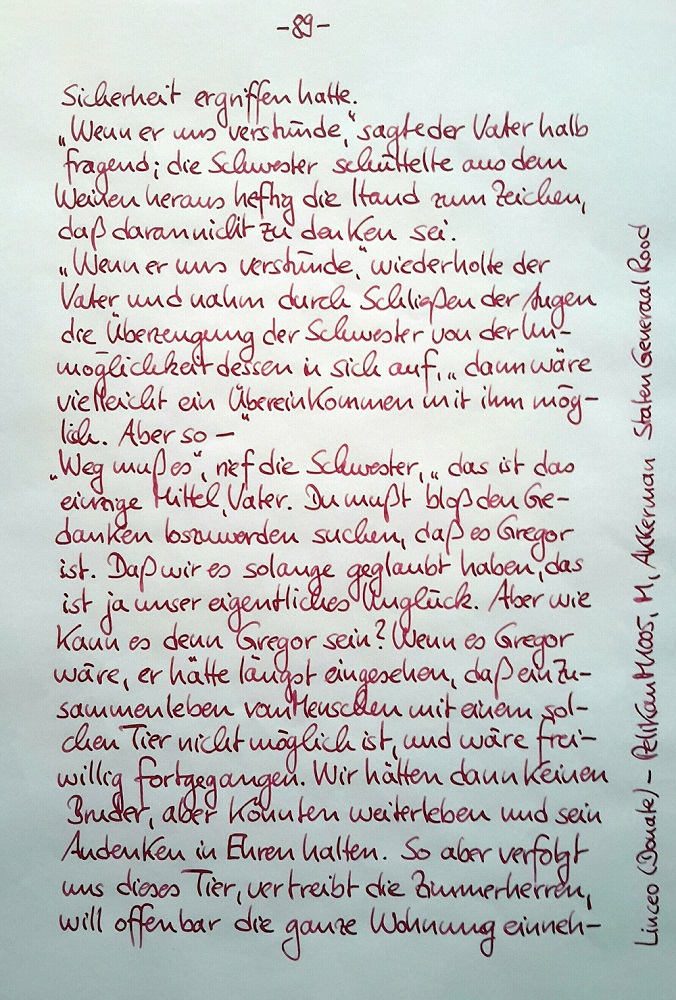 -89-
Sicherheit ergriffen hatte.
„Wenn er uns verstünde," sagte der Vater halb
fragend; die Schwester schüttelte aus dem
Weinen heraus heftig die Hand zum Zeichen,
daß daran nicht zu denken sei.
„Wenn er uns verstünde," wiederholte der
Vater und nahm durch Schließen der Augen
die Überzeugung der Schwester von der Un-
möglichkeit dessen in sich auf, „dann wäre
vielleicht ein Übereinkommen mit ihm mög-
lich. Aber so —"
„Weg muß es", rief die Schwester, „das ist das
einzige Mittel, Vater. Du mußt bloß den Ge-
danken loszuwerden suchen, daß es Gregor
ist. Daß wir es solange geglaubt haben, das
ist ja unser eigentliches Unglück. Aber wie
kann es denn Gregor sein? Wenn es Gregor
wäre, er hätte längst eingesehen, daß ein Zu-
sammenleben von Menschen mit einem sol-
chen Tier nicht möglich ist, und wäre frei-
willig fortgegangen. Wir hätten dann keinen
Bruder, aber könnten weiterleben und sein
Andenken in Ehren halten. So aber verfolgt
uns dieses Tier, vertreibt die Zimmerherren,
will offenbar die ganze Wohnung einneh-
Linceo (Donate) - Pelikan M1005, M, Akkerman Staten Generaal Rood